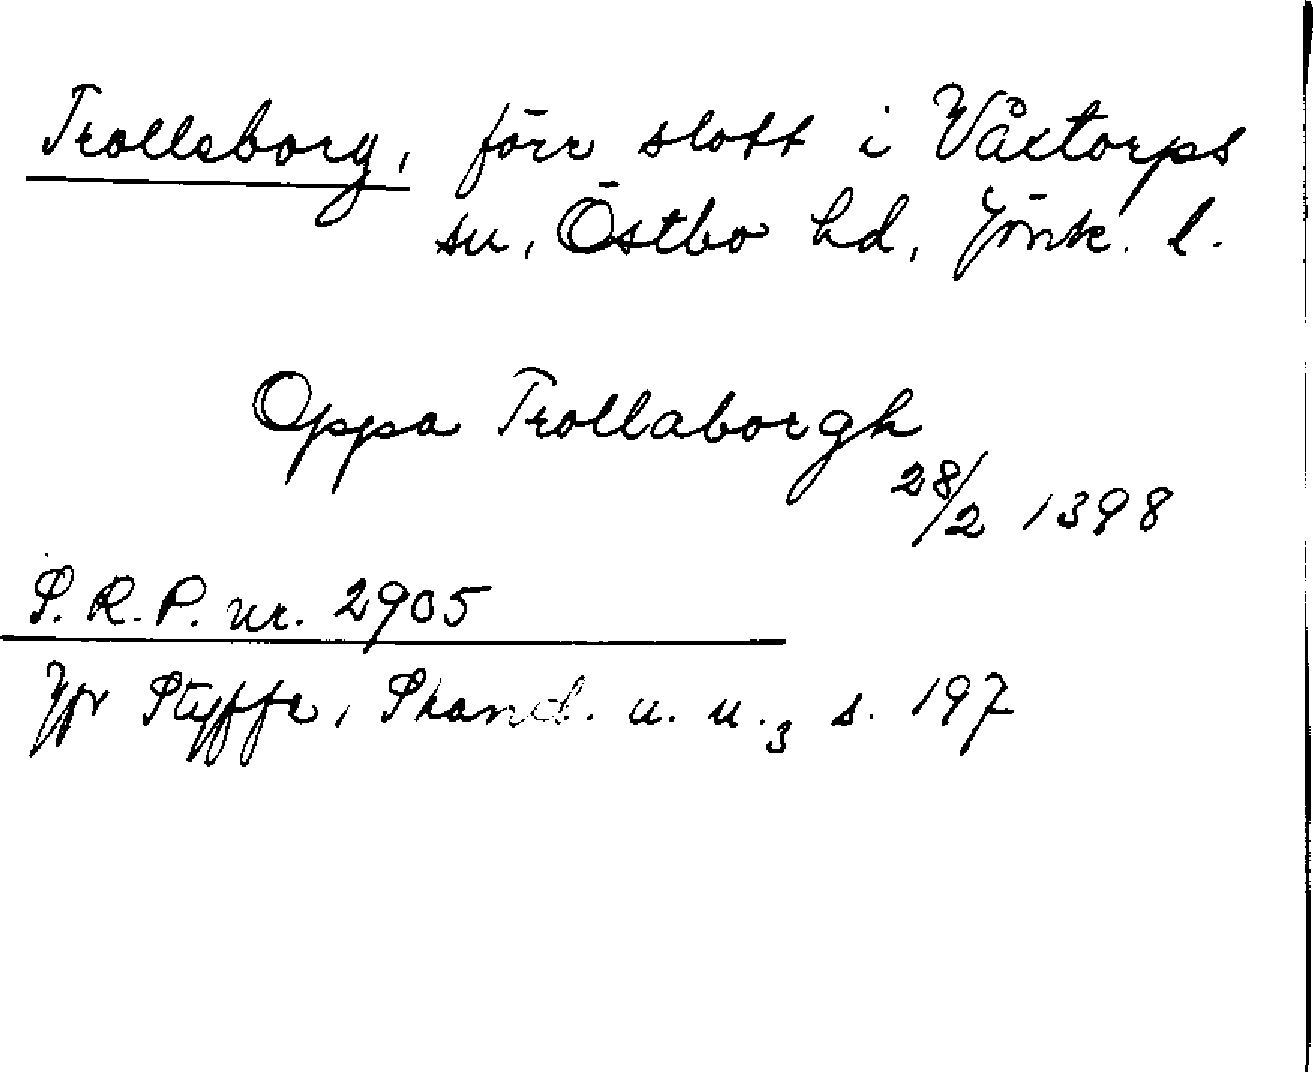 Trollsborg, förr slott i Våxtorps
sn, Östbo hd, Jönk. l.
Oppa Trollaborgh
28/2 1398
S. R. P. nr. 2905
Jfr Styffe, Skand. u. u.3 s. 197